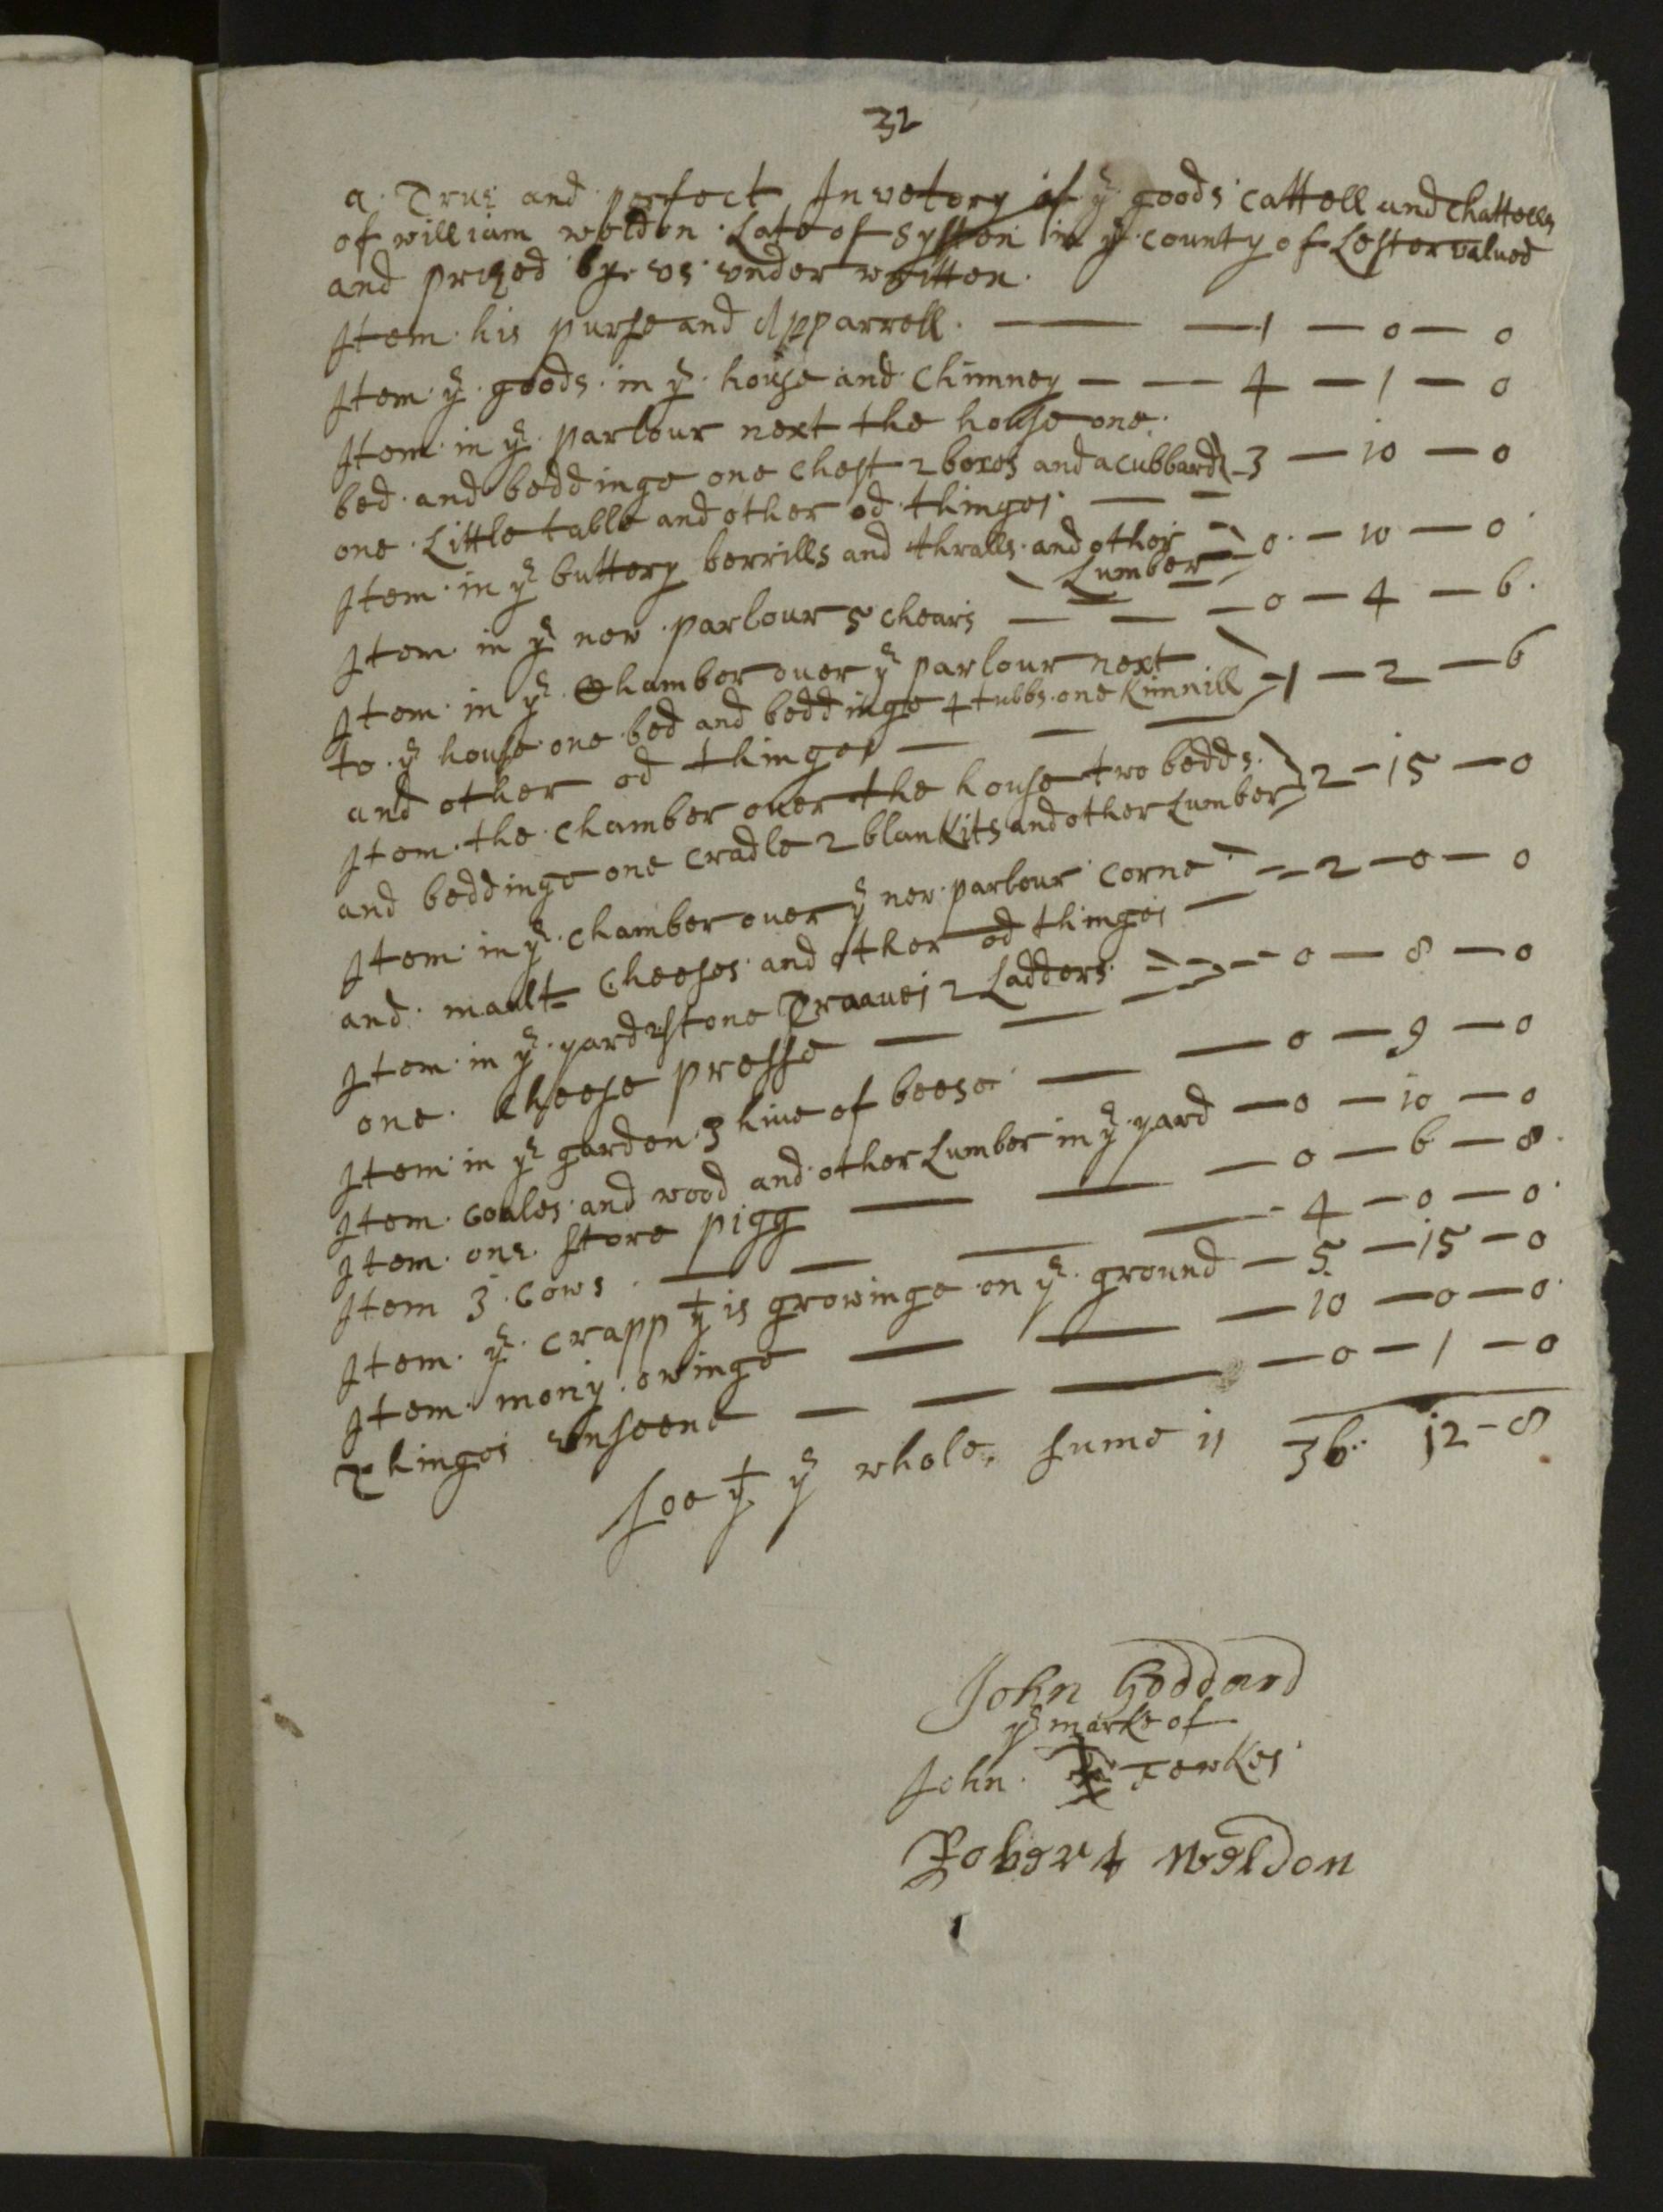 32
a True and perfect Inuetory of yᵉ goods cattell and Chattells
of william weldon Late of Syston in yᵉ county of Lester valued
and prized bye vs vnder written
Item his purse and Apparrell — — 1 — 0 — 0
Item yᵉ goods in yᵉ house and Chimney — — 4 — 1 — 0
Item in yᵉ parlour next the house one
bed and beddinge one Chest 2 boxes and a cubbard 3 — 10 — 0
one Little table and other od thinges — —
Item in yᵉ buttery berrills and thralls and other 0 — 10 — 0
Lumber
Item in yᵉ new parlour 5 chears — — — 0 — 4 — 6
Item in yᵉ Chamber ouer yᵉ parlour next
to yᵉ house one bed and beddinge 4 tubbs one Kimnill 1 — 2 — 6
and other od thinges — — —
Item the chamber ouer the house two bedds
and beddinge one cradle 2 blankits and other Lumber 2 — 15 — 0
Item in yᵉ chamber ouer yᵉ new parlour corne 2 — 0 — 0
and mault Cheeses and other od thinges —
Item in yᵉ yard 2 stone Traaues 2 Ladders 0 — 8 — 0
one Cheese presse — — —
Item in yᵉ garden 3 hiue of beese — — 0 — 9 — 0
Item Coales and wood and other Lumber in yᵉ yard — 0 — 10 — 0
Item one store pigg — — — 0 — 6 — 8
Item 3 Cows — — — — 4 — 0 — 0
Item yᵉ crapp yᵗ is growinge on yᵉ ground — 5 — 15 — 0
Item mony owinge — — — 10 — 0 — 0
Thinges vnseene — — — — 0 — 1 — 0
soe yᵗ yᵉ whole sume is 36 12 - 8
John Goddard
yᵉ marke of
John Fewkes
Robert Weldon